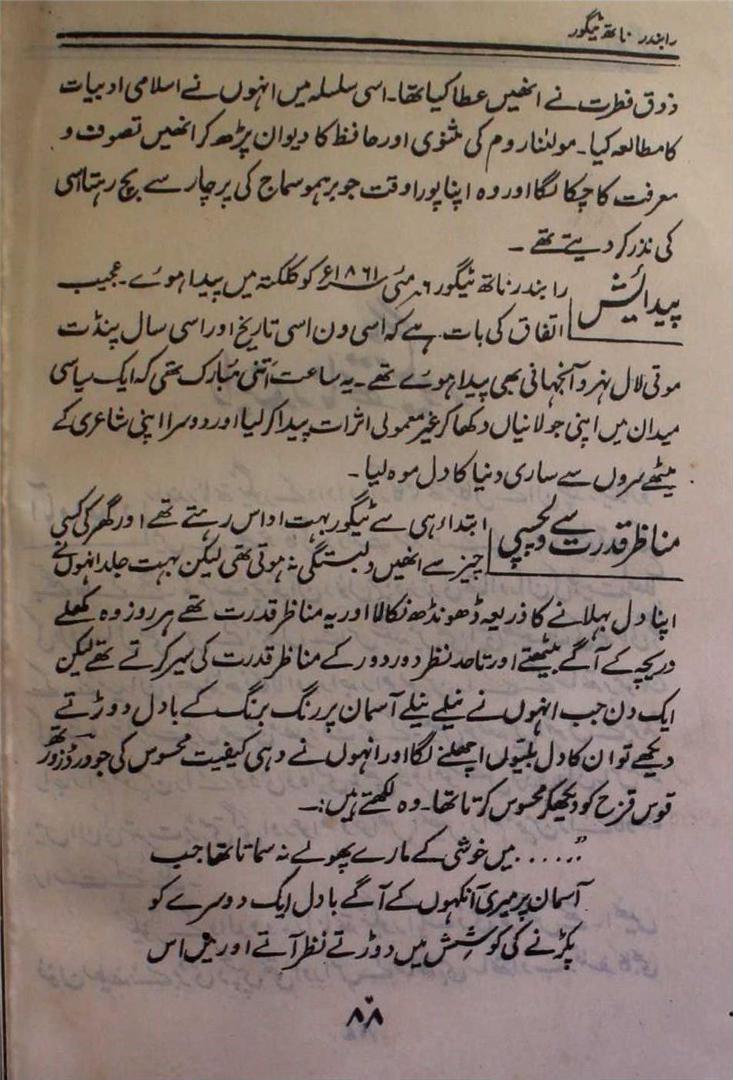 رابندر ناتھ ٹیگور
ذوق فطرت نے انھیں عطا کیا تھا۔ اسی سلسلہ میں انہوں نے اسلامی ادبیات
کا مطالعہ کیا۔ مولٰنا روم کی مثنوی اور حافظ کا دیوان پڑھ کر انھیں تصوف و
معرفت کا چسکا لگا اور وہ اپنا پورا وقت جو برہمو سماج کی پرچار سے بچ رہتا اسی
کی نذر کر دیتے تھے۔
پیدائش
رابندر ناتھ ٹیگور ۶ مئی ۱۸۶۱ء کو کلکتہ میں پیدا ہوئے۔ عجیب
اتفاق کی بات ہے کہ اسی دن اسی تاریخ اور اسی سال پنڈت
موتی لال نہرو آنجہانی بھی پیدا ہوئے تھے۔ یہ ساعت اتنی مبارک تھی کہ ایک سیاسی
میدان میں اپنی جولانیاں دکھا کر غیر معمولی اثرات پیدا کر لیا اور دوسرا اپنی شاعری کے
میٹھے سروں سے ساری دنیا کا دل موہ لیا۔
مناظر قدرت سے دلچسپی
ابتداء ہی سے ٹیگور بہت اداس رہتے تھے اور گھر کی کسی
چیز سے انھیں دلبستگی نہ ہوتی تھی لیکن بہت جلد انہوں نے
اپنا دل بہلانے کا ذریعہ ڈھونڈھ نکالا اور یہ مناظر قدرت تھے ہر روز وہ کھلے
دریچہ کے آگے بیٹھتے اور تا حد نظر دور دور کے مناظر قدرت کی سیر کرتے تھے لیکن
ایک دن جب انہوں نے نیلے نیلے آسمان پر رنگ برنگ کے بادل دوڑتے
دیکھے تو ان کا دل بلیّوں اچھلنے لگا اور انہوں نے وہی کیفیت محسوس کی جو ورڈزورتھ
قوس قزح کو دیکھکر محسوس کرتا تھا۔ وہ لکھتے ہیں:۔
"..... میں خوشی کے مارے پھولے نہ سماتا تھا جب
آسمان پر میری آنکھوں کے آگے بادل ایک دوسرے کو
پکڑنے کی کوشش میں دوڑتے نظر آتے اور میں اس
۸۸